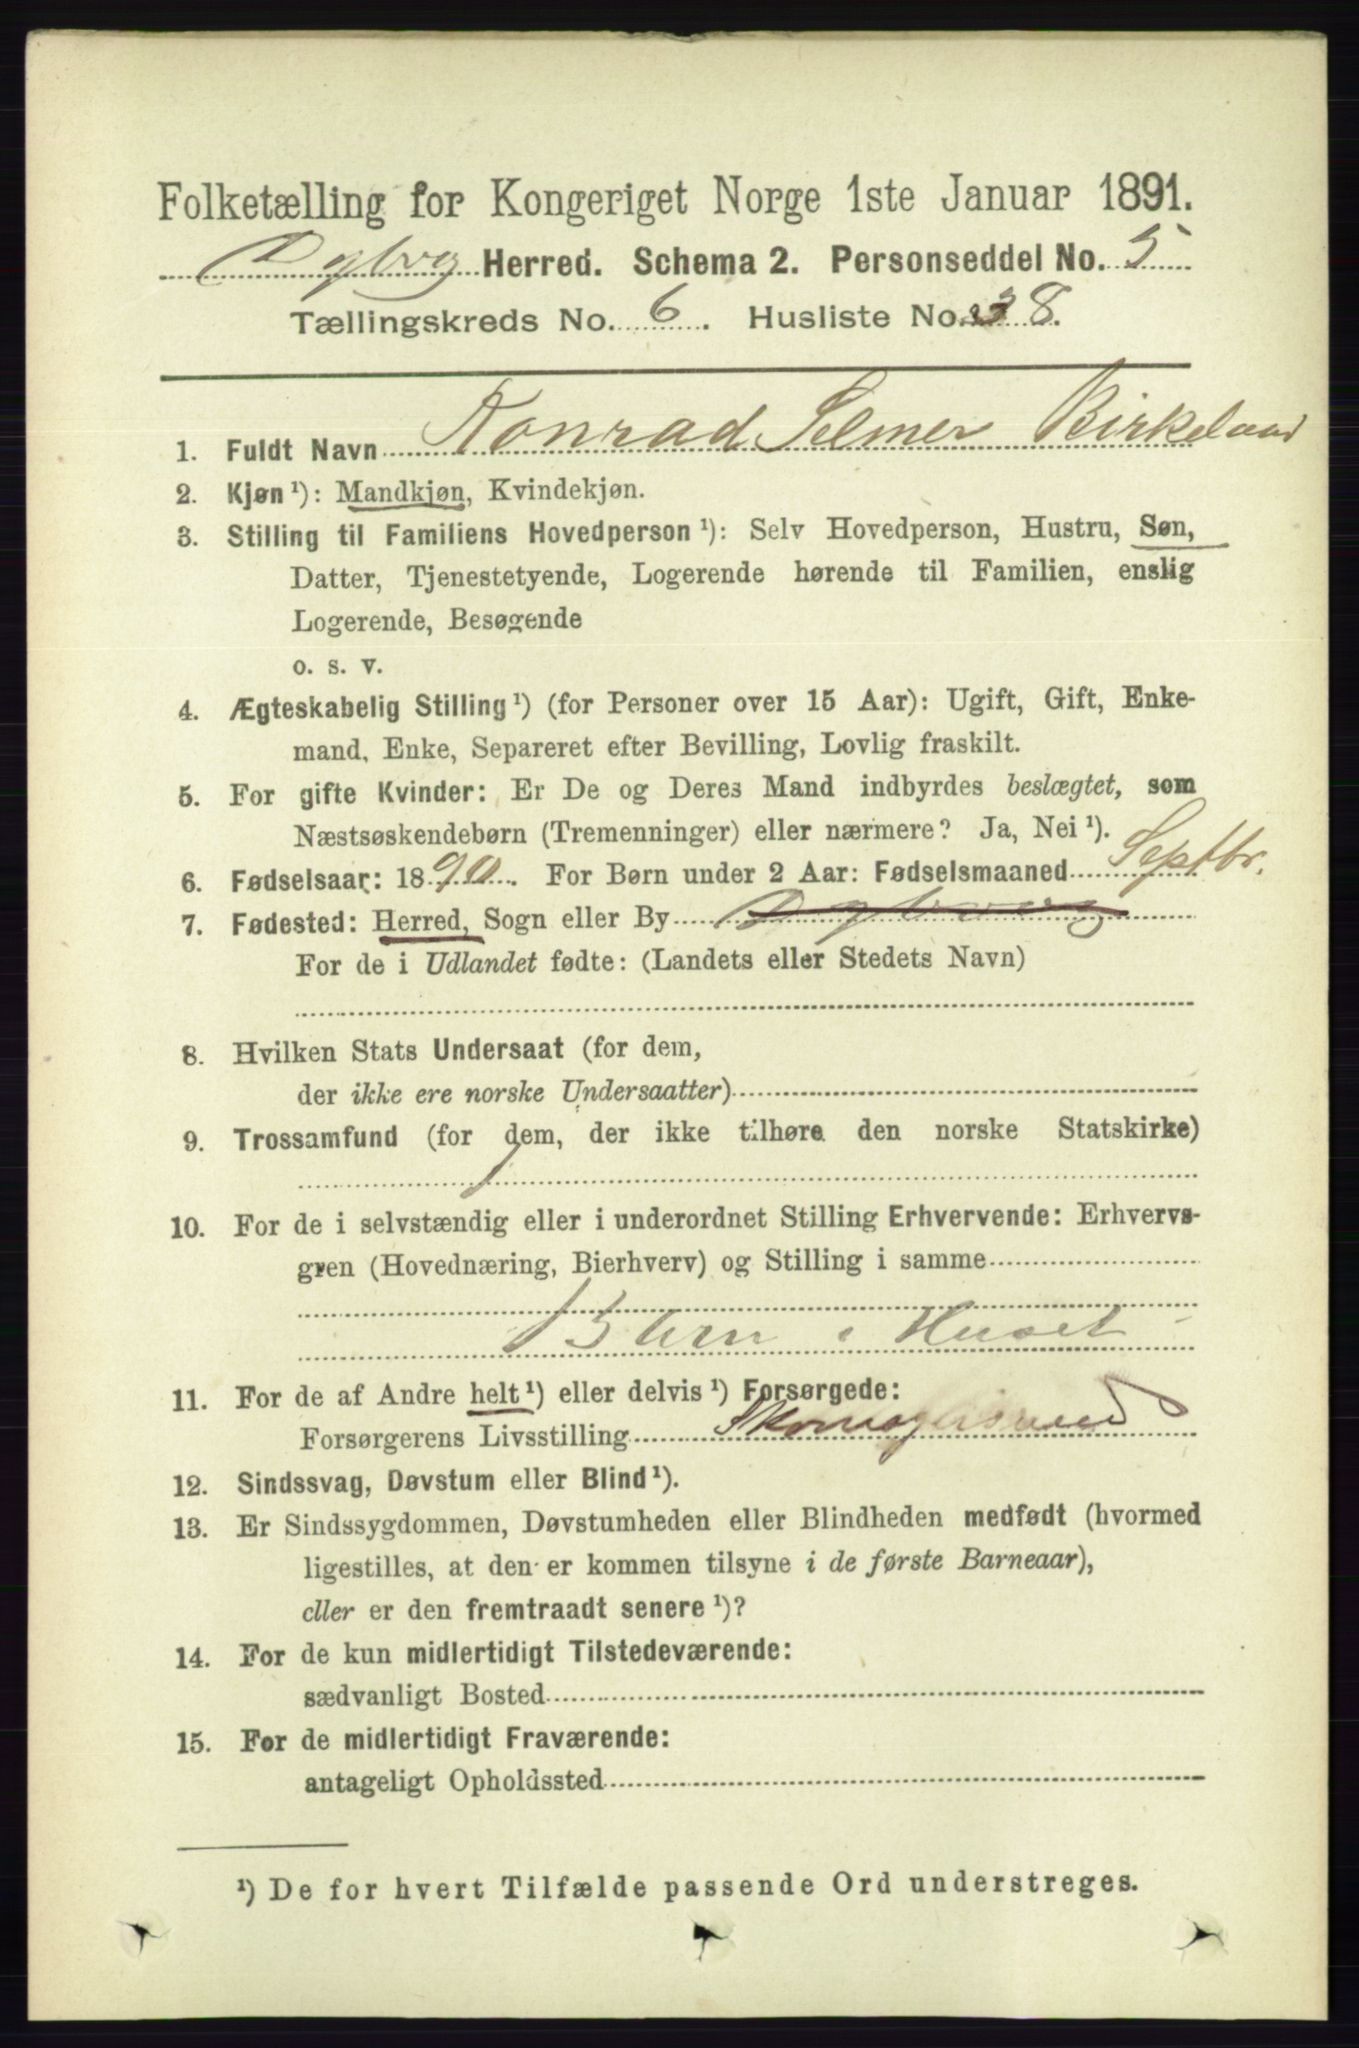 Folketælling for Kongeriget Norge 1ste Januar 1891.
Dybvg Herred. Schema 2. Personseddel No. 5
Tællingskreds No. 6. Husliste No. 38.
1. Fuldt Navn Konrad Selmer Birkeland
2. Kjøn ¹): Mandkjøn, Kvindekjøn.
3. Stilling til Familiens Hovedperson ¹): Selv Hovedperson, Hustru, Søn,
Datter, Tjenestetyende, Logerende hørende til Familien, enslig
Logerende, Besøgende
o. s. v.
4. Ægteskabelig Stilling ¹) (for Personer over 15 Aar): Ugift, Gift, Enke-
mand, Enke, Separeret efter Bevilling, Lovlig fraskilt.
5. For gifte Kvinder: Er De og Deres Mand indbyrdes beslægtet, som
Næstsøskendebørn (Tremenninger) eller nærmere? Ja, Nei ¹).
6. Fødselsaar: 1890. For Børn under 2 Aar: Fødselsmaaned Septbr.
7. Fødested: Herred, Sogn eller By Dybvaag
For de i Udlandet fødte: (Landets eller Stedets Navn)
8. Hvilken Stats Undersaat (for dem,
der ikke ere norske Undersaatter)
9. Trossamfund (for dem, der ikke tilhøre den norske Statskirke)
10. For de i selvstændig eller i underordnet Stilling Erhvervende: Erhvervs-
gren (Hovednæring, Bierhverv) og Stilling i samme
Barn i Huset
11. For de af Andre helt ¹) eller delvis ¹) Forsørgede:
Forsørgerens Livsstilling
12. Sindssvag, Døvstum eller Blind ¹).
13. Er Sindssygdommen, Døvstumheden eller Blindheden medfødt (hvormed
ligestilles, at den er kommen tilsyne i de første Barneaar),
eller er den fremtraadt senere ¹)?
14. For de kun midlertidigt Tilstedeværende:
sædvanligt Bosted
15. For de midlertidigt Fraværende:
antageligt Opholdssted
¹) De for hvert Tilfælde passende Ord understreges.